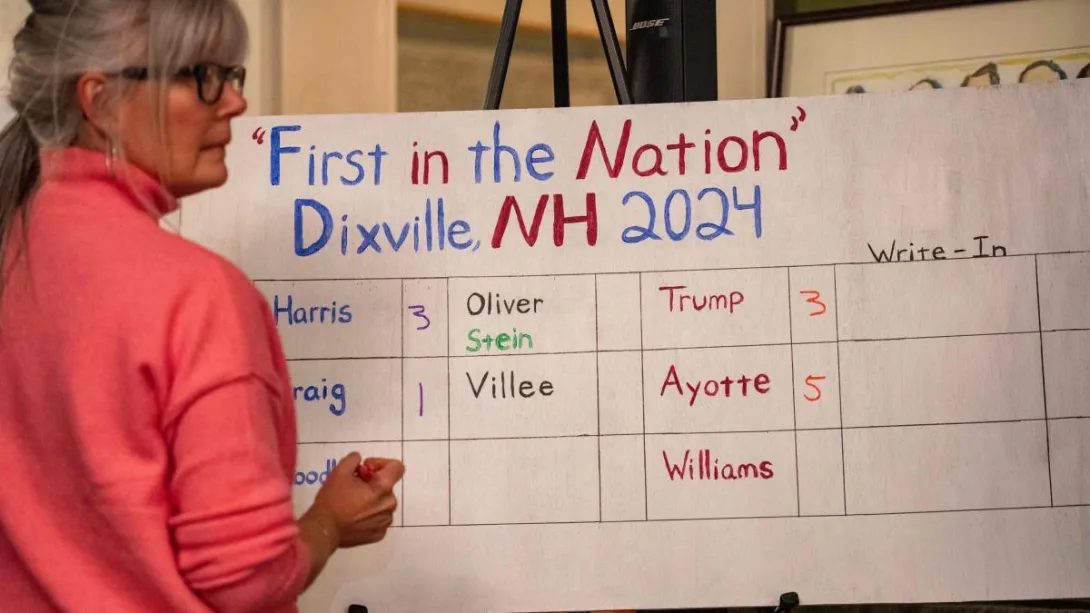 BOSE
"First in the Nation"
Dixville, NH 2024
Write-In
Harris 3 Oliver Trump 3
Stein
raig 1 Villee Ayotte 5
ood Williams